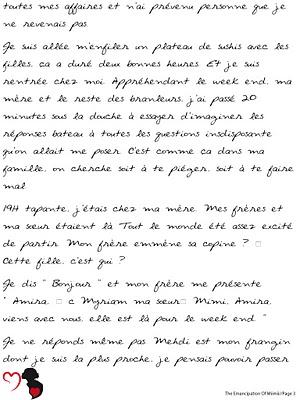 toutes mes affaires et n'ai prévenu personne que je
ne revenais pas.
Je suis allée m'enfiler un plateau de sushis avec les
filles, ca a duré deux bonnes heures. Et je suis
rentrée chez moi. Appréhendant le week end, ma
mère et le reste des branleurs, j'ai passé 20
minutes sous la douche à essayer d'imaginer les
réponses bateau à toutes les questions insdisposante
qu'on allait me poser. C'est comme ça dans ma
famille, on cherche soit à te piéger, soit à te faire
mal.
19H tapante, j'étais chez ma mère. Mes frères et
ma sœur étaient là. Tout le monde été assez excité
de partir. Mon frère emmène sa copine ?
Cette fille, c'est qui ?
Je dis " Bonjour " et mon frère me présente
" Amira, c Myriam ma sœur. Mimi, Amira,
viens avec nous, elle est là pour le week end. "
Je ne réponds même pas. Mehdi est mon frangin
dont je suis la plus proche, je pensais pouvoir passer
The Emancipation Of Mimiii Page 3